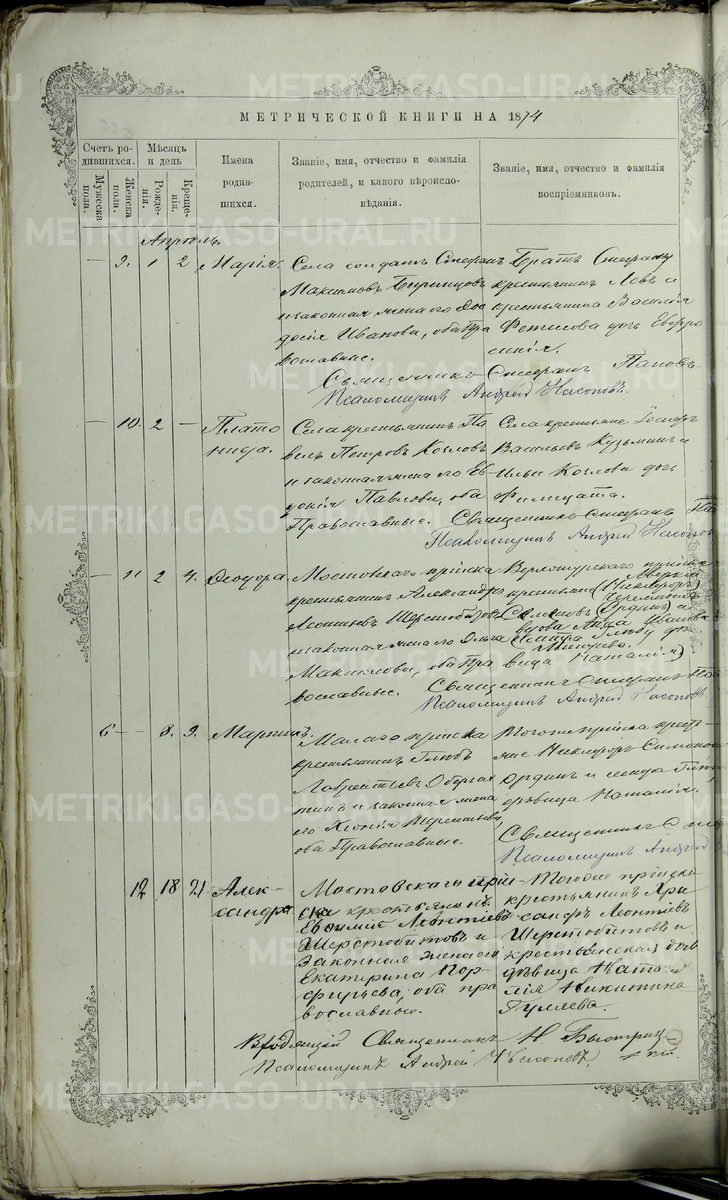 МЕТРИЧЕСКОЙ КНИГИ НА 1874
Счетъ родившихся.
Мужеска пола.
Женска пола.
Мѣсяцъ и день
Рожденія.
Крещенія.
Имена родившихся.
Званіе, имя, отчество и фамилія родителей, и какого вѣроисповѣданія.
Званіе, имя, отчество и фамилія воспріемниковъ.
Апрѣль.
— 9. 1 2 Марія.
Села солдатъ Стефанъ
Максимовъ
и законная жена его Ѳео
досія Иванова, оба Пра
вославные.
Братъ Стефану
крестьянинъ Левъ и
крестьянина Василія
Фетисова дочь Евфро
синія.
Священникъ Стефанъ Поповъ
Псаломщикъ Андрей Насоновъ.
— 10. 2 — Плато
нида.
Села крестьянинъ Па
велъ Петровъ Козловъ
и законная жена его Ев
докія Павлова, оба
Православные.
Села крестьяне
Васильевъ Кузьминъ и
Ильи Козлова дочь
Фелицата.
Священникъ Стефанъ По
Псаломщикъ Андрей Насонов
— 11 2 4. Ѳеодора.
Мостовскаго пріиска
крестьянинъ Александръ
Леонтьевъ Шерстобитовъ
и законная жена его Ольга
Максимова, оба Пра
вославные.
Верхотурскаго
крестьянинъ (Никифоръ)
Семеновъ (Ординъ) и
вдова Анна Иванова
вица Наталія)
Священникъ Стефанъ По
Псаломщикъ Андрей Насоновъ
6 — — 8. 9. Мартинъ.
Малаго пріиска
крестьянинъ Глѣбъ
Лаврентьевъ
и законная жена
его Хіонія Терентьева,
оба Православные.
Тогоже пріиска крест
яне Никифоръ Симоновъ
Ординъ и
дѣвица Наталія.
Священникъ С
Псаломщикъ Андрей
12 18 21 Алек-
сандра
Мостовскаго прій-
ска крестьянинъ
Евѳимій Леонтіевъ
Шерстобитовъ и
Законная жена его
Екатерина Пор-
фирьева, оба пра
вославные.
Тогоже прійска
крестьянинъ Але
ксандръ Леонтіевъ
Шерстобитовъ и
крестьянская дочь
дѣвица Ната-
лія Никитина
Гуляева.
Священникъ Н Быстриц-
кій.
Псаломщикъ Андрей Насоновъ.
METRIKI.GASO-URAL.RU